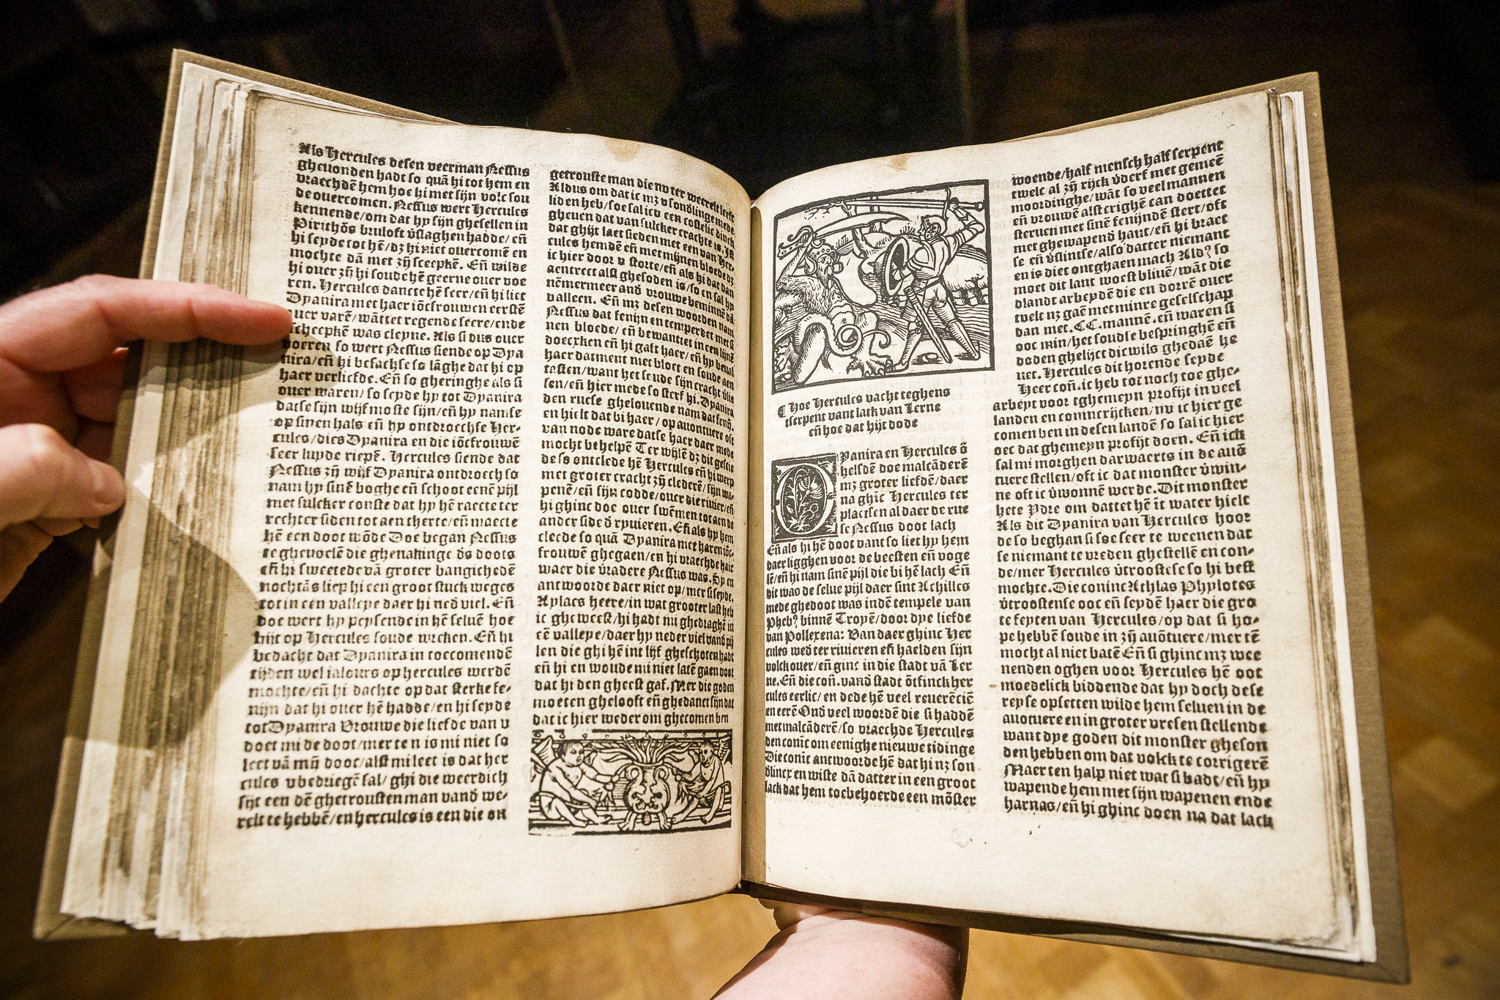 Als Hercules desen veerman Nessus
ghevonden hadt so quā hi tot hem en
vraechdē hem hoe hi met sijn volc sou
de overcomen. Nessus wert Hercules
kennende/om dat hy sijn ghesellen in
Pirithōs bruloft v̄slaghen hadde/eñ
hi seyde tot hē/dz hi niet overcomē en
mochte dā met zij scepkē. Eñ wilde
hi over zij soudē hē geerne over voe
ren. Hercules dancte hē seer/eñ hi liet
Dyanira met haer iōcfrouwen eersten
over varē/wāttet regende seere/ende
scheepkē was cleyne. Als si dus over
voeren so wert Nessus siende op Dya
nira/eñ hi besachse so lāghe dat hi op
haer verliefde. Eñ so gheringhe als si
over waren/so seyde hy tot Dyanira
datse sijn wijf moste sijn/eñ hy namse
op sinen hals eñ hy ontdroechse Her-
cules/dies Dyanira en die iōcfrouwē
seer luyde riepē. Hercules siende dat
Nessus zij wijf Dyanira ontdroech so
nam hy sinē boghe eñ schoot eenē pijl
met sulcker conste dat hy hē raecte ter
rechter siden tot aen therte/eñ maecte
hē een doot wōde Doe began Nessus
te ghevoelē die ghenakinge ds doots
eñ hi sweetede vā groter bangichedē
nochtās liep hi een groot stuck weges
tot in een valleye daer hi ned viel. Eñ
doe wert hy peysende in hē selvē hoe
hijt op Hercules soude wreken. Eñ hi
bedacht dat Dyanira in toccomendē
tijden wel ialours op hercules werdē
mochte/eñ hi dachte op dat sterke fe-
nijn dat hi over hē hadde/en hi seyde
tot Dyanira Vrouwe die liefde van v
doet mi de doot/mer ten is mi niet so
leet vā mij doot/alst mi leet is dat her
cules v bedriegē sal/ghi die weerdich
sijt een dē ghetrousten man vand we-
relt te hebbē/en hercules is een die on
getrouste man die nv ter weerelt leeft
Aldus om dat ic mz v sonderlinge mede
liden heb/so sal ic v een costelic dinck
gheven dat van sulcker crachte is. Is
dat ghijt laet sieden met een van Her-
cules hemdē eñ met mijnen bloede dz
ic hier door v storte/eñ als hi dat dan
aentreet alst ghesoden is/so en sal hy
nēmermeer and vrouwe beminnē dā
valleen. Eñ mz desen woorden nam
Nessus dat fenijn en temperdet met si
nen bloede/ eñ bewantiet in een lijnē
doecxken eñ hi gaft haer/ eñ hy beval
haer datment niet bloet en soude aen
tasten/want het soude sijn cracht vlie
sen/eñ hier mede so sterf hi. Dyanira
den nuese ghelovende nam dat fenij
en hielt dat bi haer/ op avontuere oft
van node ware datse haer daer mede
mocht behelpē Ter wijlē dz dit geschie
de so ontclede hē Hercules eñ hi werp
met groter cracht zij clederē/sijn wa
penē/en sijn codde/over die riviere/eñ
hi ghinc doe over swēmen tot aen de
ander side d ryvieren. Eñ als hy hem
clede so quā Dyanira met haren iōc-
frouwē ghegaen/en hi vraechde haer
waer die v̄radere Nessus was. Sp en
antwoorde daer niet op/mer si seyde.
Aylacs heere/in wat grooter last heb
ic gheweest/hi hadt nu ghedraghē in
eē valleye/daer hy neder viel vand pij
len die ghi hē int lijf gheschoten hadt
eñ hi en woude mi niet latē gaen voor
dat hi den gheest gaf. Mer die goden
moeten ghelooft eñ ghedanct sijn dat
dat ic hier weder om ghecomen ben
¶ Hoe Hercules vacht teghens
tserpent vant lack van Lerne
eñ hoe dat hijt dode
Dyanira en Hercules ō
helsdē doe malcāderē
mz groter liefdē/daer
na ghic Hercules ter
plaetsen al daer de rue
se Nessus doot lach
Eñ als hi hē doot vant so liet hy hem
daer ligghen voor de beesten eñ voge
lē/eñ hi nam sinē pijl die bi hē lach Eñ
dit was de selve pijl daer sint Achilles
mede ghedoot was indē tempele van
Pheb⁹ binnē Troyē/door dye liefde
van Pollexena: Van daer ghinc Her
cules wed ter rivieren eñ haelden sijn
volck over/eñ ginc in die stadt vā Ler
ne. Eñ die con. vand stadt ōtfinck her
cules eerlic/ en dede hē veel reverēciē
en eerē Ond veel woordē die si haddē
met malcāderē/so vraechde Hercules
den conīc om eenighe nieuwe tidinge
Die conīc antwoorde hē dat hi nz son
dlincx en wiste dā datter in een groot
lack dat hem toebehoerde een mōster
woende/half mensch half serpent
twelc al zij rijck v̄derf met gemeē
moordinghe/wāt so veel mannen
eñ vrouwē alst crighē can doettet
sterven met sinē fenijndē stert/oft
met ghewapend hant/eñ hi braet
se eñ v̄slintse/also datter niemant
en is diet ontghaen mach Ald⁹ so
moet dit lant woest blivē/wāt die
dlandt arbeydē die en dorrē over
velt nz gaē met minre geselschap
dan met .CC. mannē. eñ waren si
ooc min/het soudse bespringhē eñ
doden ghelijct dicwils ghedaē he
vet. Hercules dit horende seyde
Heer con. ic heb tot noch toe ghe-
arbeyt voor tghemeyn profijt in veel
landen en conincrijcken/ nv ic hier ge
comen ben in desen landē so sal ic hier
oec dat ghemeyn profijt doen. Eñ ick
sal mi morghen darwaerts in de avō
tuere stellen/oft ic dat monster v̄win-
ne oft ic v̄wonnē werde. Dit monster
hete Ydre om dattet hē īt water hielt
Als dit Dyanira van Hercules hoor
de so beghan si soe seer te weenen dat
se niemant te vreden ghestellē en con-
de/mer Hercules v̄trooste se so hi best
mochte. Die coninc Athlas Phylotes
v̄troostense ooc eñ seydē haer die gro
te feyten van Hercules/op dat si ho-
pe hebbē soude in zij avōtuere/mer tē
mocht al niet batē Eñ si ghinc mz wee
nenden oghen voor Hercules hē oot
moedelick biddende dat hy doch dese
reyse opsetten wilde hem selven in de
avotuere en in groter vresen stellende
want dye goden dit monster gheson
den hebben om dat volck te corrigerē
Maer ten halp niet wat si badt/eñ hy
wapende hem met sijn wapenen ende
harnas/eñ hi ghinc doen na dat lack